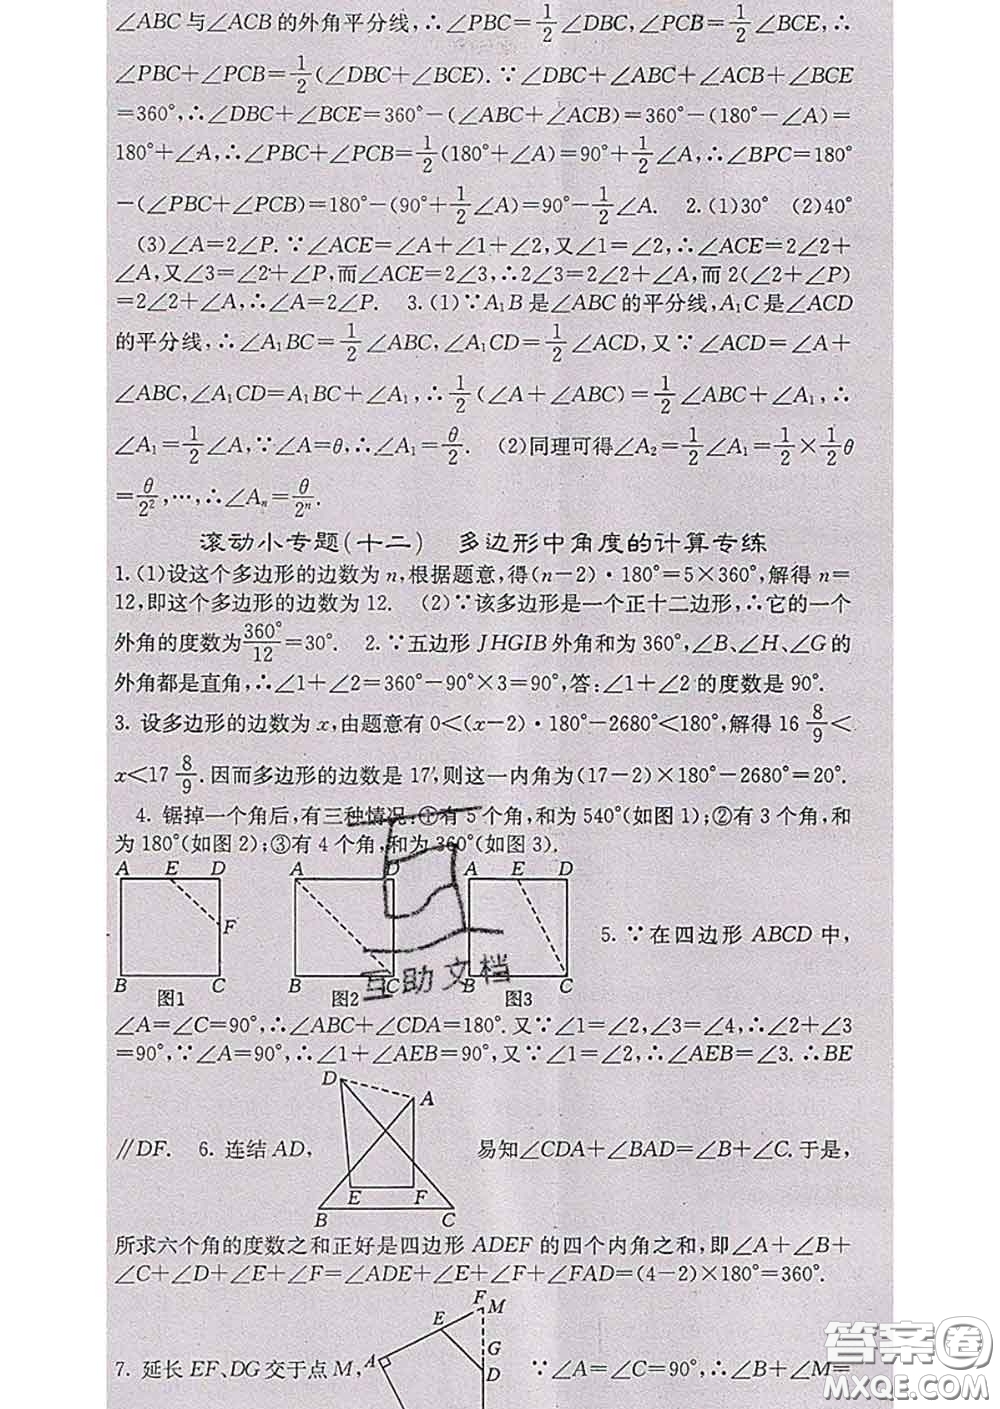 ∠ABC与∠ACB的外角平分线,∴∠PBC=1/2∠DBC,∠PCB=1/2∠BCE,∴
∠PBC+∠PCB=1/2(∠DBC+∠BCE).∵∠DBC+∠ABC+∠ACB+∠BCE
=360°,∴∠DBC+∠BCE=360°-(∠ABC+∠ACB)=360°-(180°-∠A)=
180°+∠A,∴∠PBC+∠PCB=1/2(180°+∠A)=90°+1/2∠A,∴∠BPC=180°
-(∠PBC+∠PCB)=180°-(90°+1/2∠A)=90°-1/2∠A. 2.(1)30° (2)40°
(3)∠A=2∠P.∵∠ACE=∠A+∠1+∠2,又∠1=∠2,∴∠ACE=2∠2+
∠A,又∠3=∠2+∠P,而∠ACE=2∠3,∴2∠3=2∠2+∠A,而2(∠2+∠P)
=2∠2+∠A,∴∠A=2∠P. 3.(1)∵A₁B是∠ABC的平分线,A₁C是∠ACD
的平分线,∴∠A₁BC=1/2∠ABC,∠A₁CD=1/2∠ACD,又∵∠ACD=∠A+
∠ABC,∠A₁CD=A₁BC+∠A₁,∴1/2(∠A+∠ABC)=1/2∠ABC+∠A₁,∴
∠A₁=1/2∠A,∵∠A=θ,∴∠A₁=θ/2. (2)同理可得∠A₂=1/2∠A₁=1/2×1/2θ
=θ/2²,…,∴∠Aₙ=θ/2ⁿ.
滚动小专题(十二) 多边形中角度的计算专练
1.(1)设这个多边形的边数为n,根据题意,得(n-2)·180°=5×360°,解得n=
12,即这个多边形的边数为12. (2)∵该多边形是一个正十二边形,∴它的一个
外角的度数为360°/12=30°. 2.∵五边形JHGIB外角和为360°,∠B、∠H、∠G的
外角都是直角,∴∠1+∠2=360°-90°×3=90°,答:∠1+∠2的度数是90°.
3. 设多边形的边数为x,由题意有0<(x-2)·180°-2680°<180°,解得16 8/9<
x<17 8/9.因而多边形的边数是17,则这一内角为(17-2)×180°-2680°=20°.
4. 锯掉一个角后,有三种情况:①有5个角,和为540°(如图1);②有3个角,和
为180°(如图2);③有4个角,和为360°(如图3).
A E D A D A E D
F
5.∵在四边形ABCD中,
B C B C B C
图1 图2 图3
互助文档
∠A=∠C=90°,∴∠ABC+∠CDA=180°.又∵∠1=∠2,∠3=∠4,∴∠2+∠3
=90°,∵∠A=90°,∴∠1+∠AEB=90°,又∵∠1=∠2,∴∠AEB=∠3.∴BE
D A
∥DF. 6. 连结AD, 易知∠CDA+∠BAD=∠B+∠C.于是,
E F
B C
所求六个角的度数之和正好是四边形ADEF的四个内角之和,即∠A+∠B+
∠C+∠D+∠E+∠F=∠ADE+∠E+∠F+∠FAD=(4-2)×180°=360°.
F M
E
G
A D
7. 延长EF、DG交于点M, ∵∠A=∠C=90°,∴∠B+∠M=
答案圈
MXQE.COM